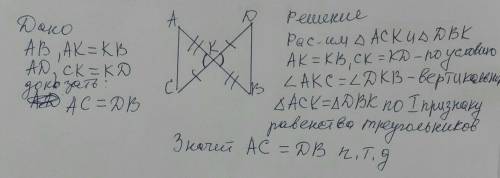 Дано
AB, AK=KB
AD, CK=KD
доказать:
AC=DB
A
D
K
C
B
Решение
Рас-им △ACK и △DBK
AK=KB, CK=KD - по условию
∠AKC=∠DKB - вертикальные
△ACK=△DBK по I признаку
равенства треугольников
Значит AC=DB ч.т.д